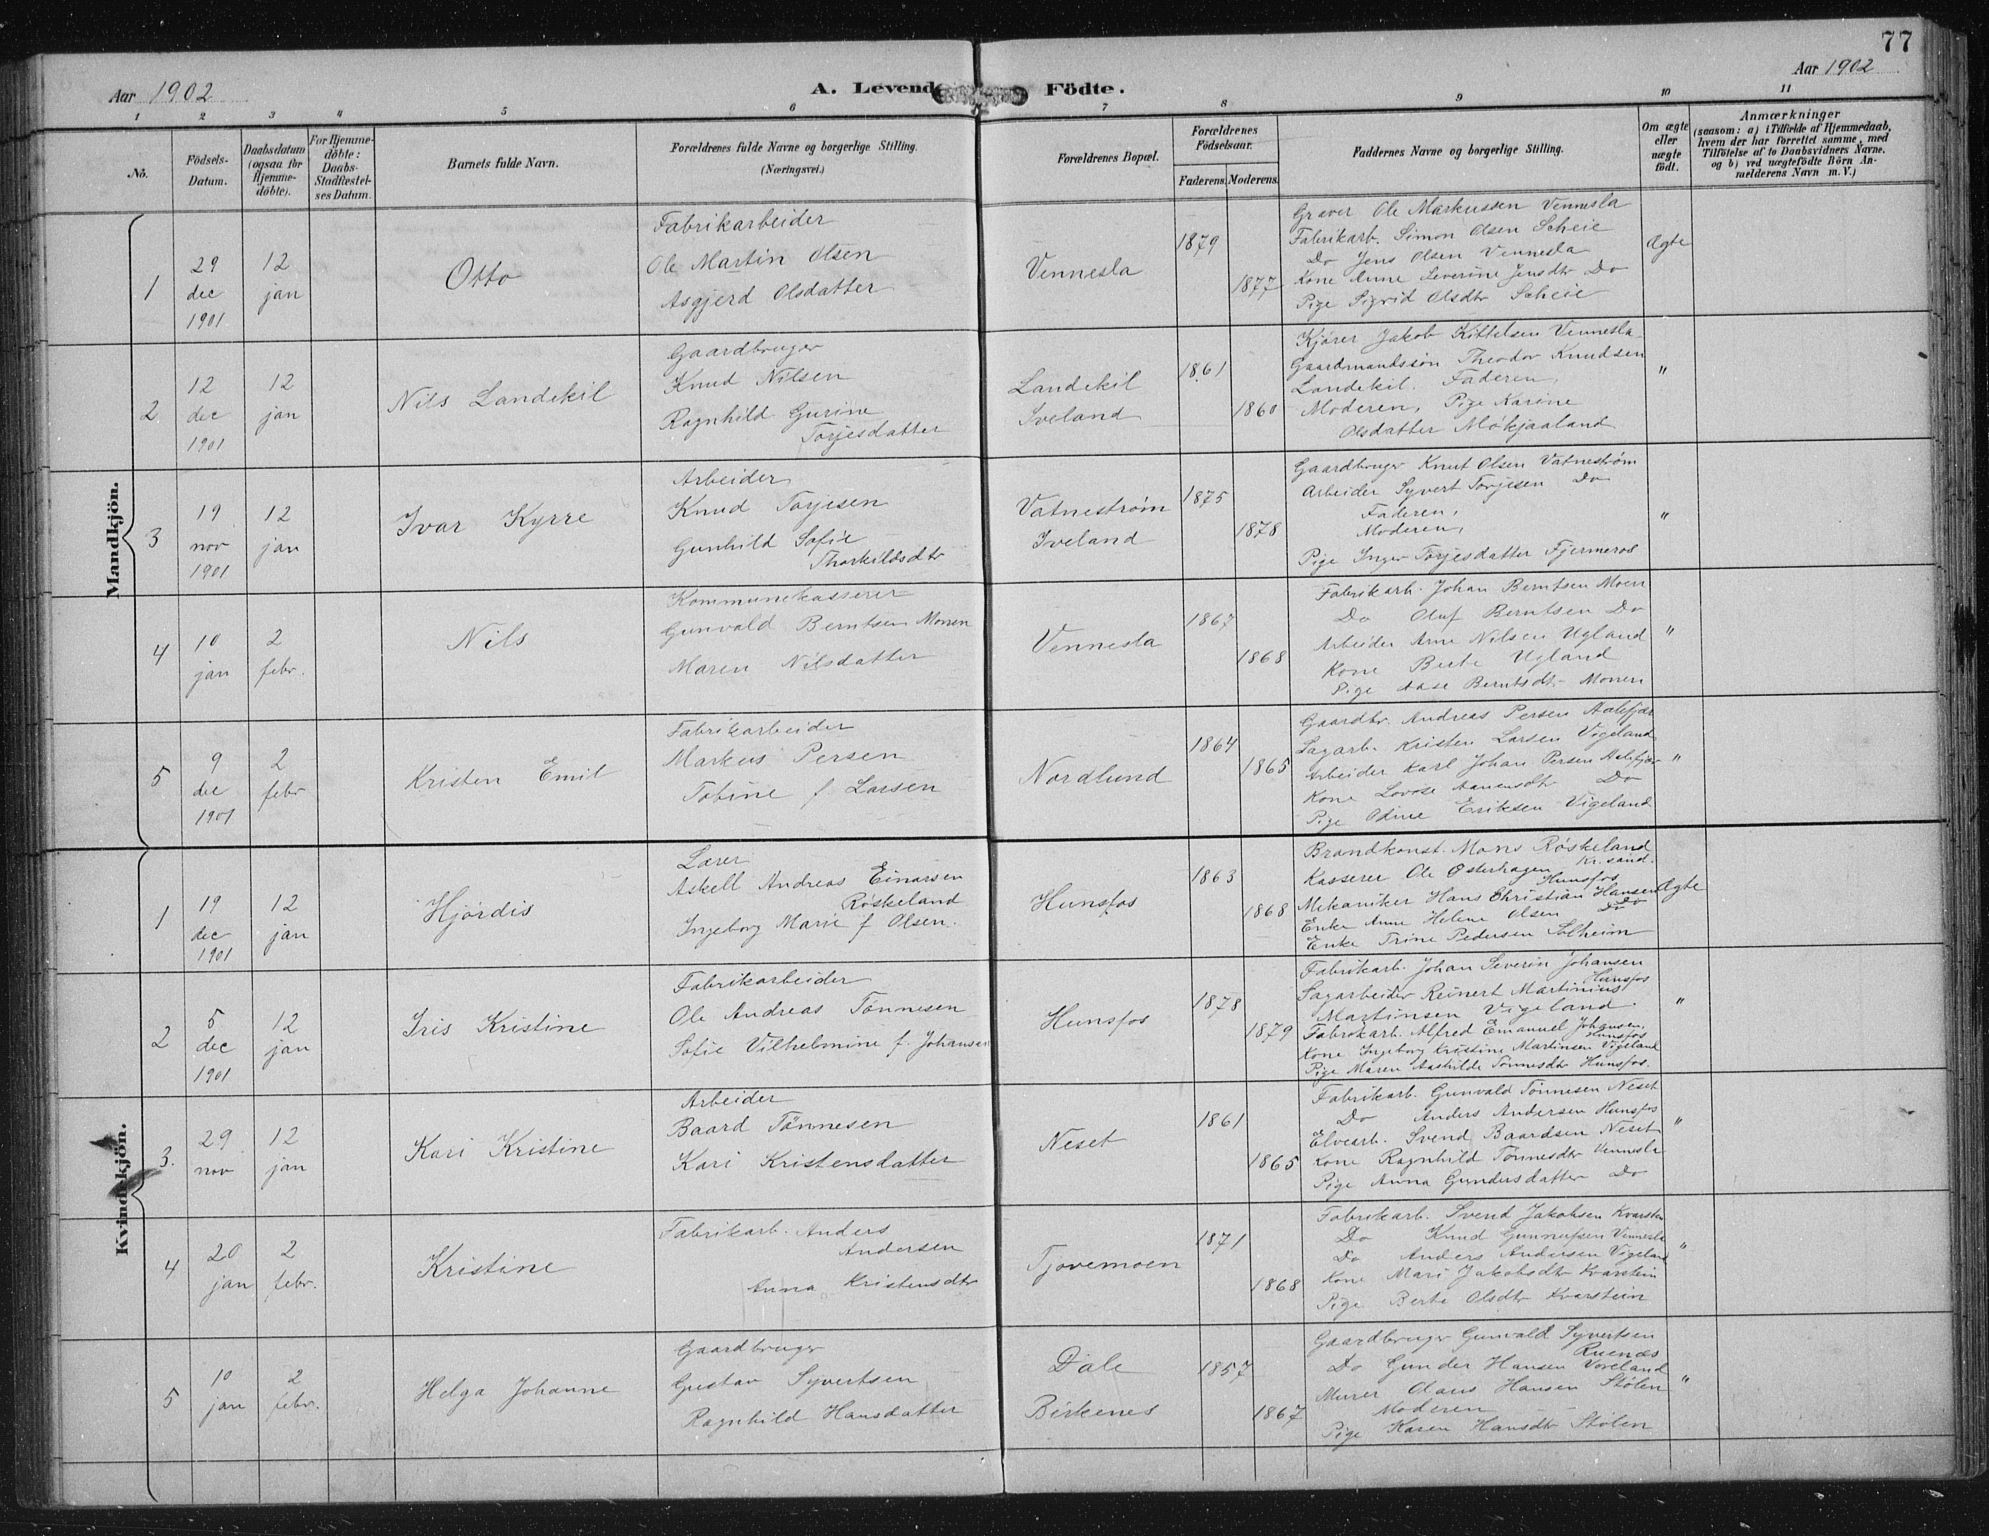 77
Aar 1902
A. Levende Födte.
Aar 1902
1 2 3 4 5 6 7 8 9 10 11
No.
Födsels-Datum.
Daabsdatum (ogsaa for Hjemme-döbte).
For Hjemme-döbte: Daabs-Stadfæstel-ses Datum.
Barnets fulde Navn.
Forældrenes fulde Navne og borgerlige Stilling.
(Næringsvei.)
Forældrenes Bopæl.
Forældrenes Födselsaar.
Faderens. Moderens.
Faddernes Navne og borgerlige Stilling.
Om ægte eller uægte födt.
Anmærkninger
(saasom: a) i Tilfælde af Hjemmedaab,
hvem der har forrettet samme, med
Tilföielse af to Daabsvidners Navne,
og b) ved uægtefödte Börn An-
melderens Navn m. V.)
Mandkjön.
1
29 dec 1901
12 jan
Otto
Fabrikarbeider
Ole Martin Olsen
Asgjerd Olsdatter
Vennesla
1879
1877
Graver Ole Markussen Vennesla
Fabrikarb. Simon Olsen Scheie
Do Jens Olsen Vennesla
Kone Anne Severine Jensdtr Do
Pige Sigrid Olsdtr Scheie
Ægte
2
12 dec 1901
12 jan
Nils Landekil
Gaardbruger
Knud Nilsen
Ragnhild Gurine
Torjesdatter
Landekil
Iveland
1861
1860
Kjører Jakob Kittelsen Vennesla
Gaardmandssøn Theodor Knudsen
Landekil. Faderen,
Moderen, Pige Karine
Olsdatter Møkjaaland
"
3
19 nov 1901
12 jan
Ivar Kyrre
Arbeider
Knud Torjesen
Gunhild Sofie
Thorkildsdtr
Vatneström
Iveland
1875
1878
Gaardbruger Knut Olsen Vatneström
Arbeider Syvert Torjesen Do
Faderen,
Moderen,
Pige Inger Torjesdatter Fjermeros
"
4
10 jan
2 febr.
Nils
Kommunekasserer
Gunvald Berntsen Monen
Maren Nilsdatter
Vennesla
1867
1868
Fabrikarb. Johan Berntsen Moen
Do Oluf Berntsen Do
Arbeider Arne Nilsen Ugland
Kone Berte Ugland
Pige Aase Berntsdt. Monen
"
5
9 dec 1901
2 febr
Kristen Emil
Fabrikarbeider
Markus Persen
Tobine f. Larsen
Nordlund
1864
1865
Gaardbr. Andreas Persen Aalefjær
Sagarb. Kristen Larsen Vigeland
Arbeider Karl Johan Persen Aalefjær
Kone Lovise Aanensdtr Do
Pige Odine Eriksen Vigeland
"
Kvindekjön.
1
19 dec 1901
12 jan
Hjördis
Lærer
Askell Andreas Einarsen
Röskeland
Ingeborg Marie f Olsen.
Hunsfos
1863
1868
Brandkonst. Mons Röskeland
Kr.sand.
Kasserer Ole Østerhagen
Hunsfos
Mekaniker Hans Christian Hansen
Do
Enke Anne Helene Olsen Do
Enke Trine Pedersen Solheim
Ægte
2
5 dec 1901
12 jan
Iris Kristine
Fabrikarbeider
Ole Andreas Tönnesen
Sofie Vilhelmine f. Johansen
Hunsfos
1878
1879
Fabrikarb. Johan Severin Johansen
Hunsfos
Sagarbeider Reinert Martinius
Martinsen Vigeland
Fabrikarb. Alfred Emanuel Johansen,
Hunsfos
Kone Ingeborg Kristine Martinsen Vigeland
Pige Maren Aashilde Tönnesdtr Hunsfos.
"
3.
29 nov
12 jan
Kari Kristine
Arbeider
Baard Tönnesen
Kari Kristensdatter
Neset
1861
1865
Fabrikarb. Gunvald Tönnesen Neset
Do Anders Andersen Hunsfos
Elvearb. Svend Baardsen Neset
Kone Ragnhild Tönnesdtr Vennesla
Pige Anna Gundersdatter Do
"
4
20 jan
2 febr.
Kristine
Fabrikarb. Anders
Andersen
Anna Kristensdtr
Tjovemoen
1871
1868
Fabrikarb. Svend Jakobsen Kvarsten
Do Knud Gunnufsen Vennesla
Do Anders Andersen Vigeland
Kone Mari Jakobsdtr Kvarstein
Pige Berte Olsdtr Kvarstein
"
5
10 jan
2 febr.
Helga Johanne
Gaardbruger
Gustav Syvertsen
Ragnhild Hansdatter
Dale
Birkenes
1857
1867
Gaardbruger Gunvald Syvertsen
Ruenæs
Do Gunder Hansen Voreland
Murer Olaus Hansen Stölen
Moderen
Pige Karen Hansdtr Stölen
"